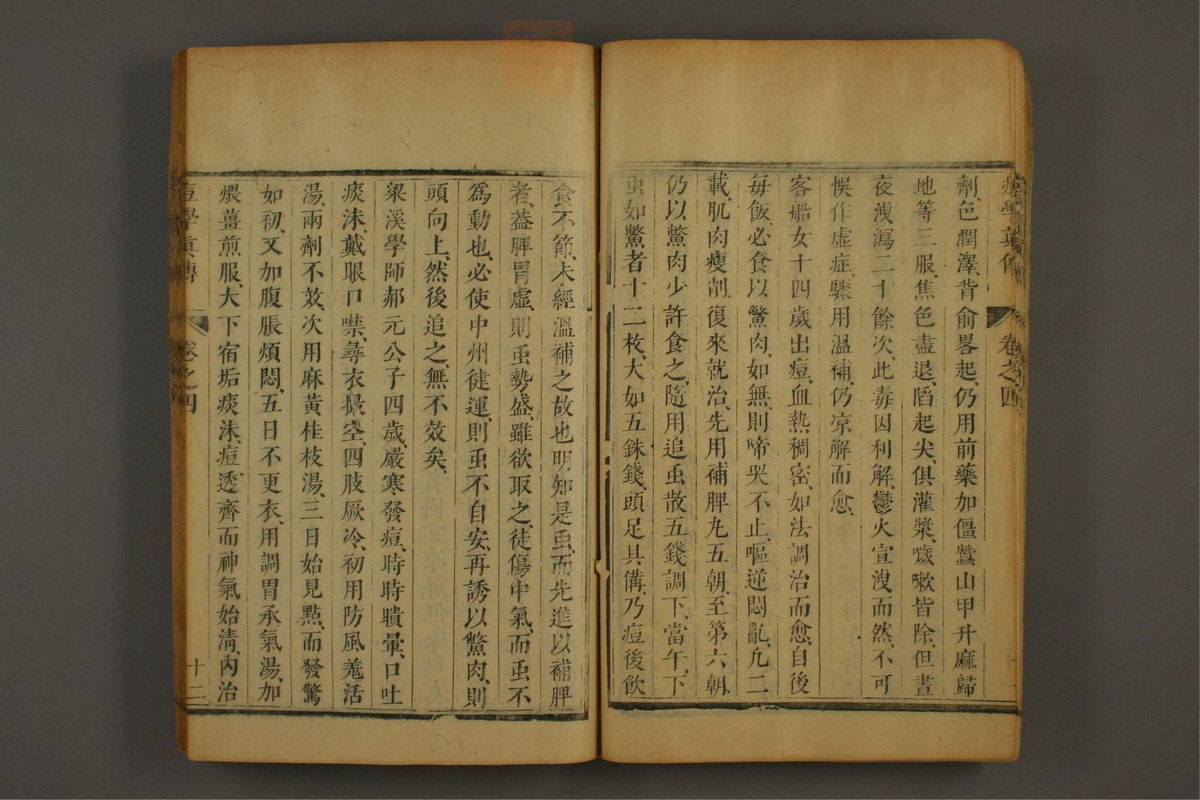 痘學眞傳 卷之四
劑、色潤澤、背俞畧起、仍用前藥加僵蠶山甲升麻歸
地等三服、焦色盡退、陷起尖俱灌漿、咳嗽皆除、但晝
夜洩瀉二十餘次、此毒因利解、鬱火宣洩而然、不可
悞作虛症、驟用溫補、仍凉解而愈、
客船女十四歲出痘、血熱稠密、如法調治而愈、自後
每飯、必食以鱉肉、如無、則啼哭不止、嘔逆悶亂、九二
載、肌肉瘦削、復來就治、先用補脾九五朝、至第六朝、
仍以鱉肉少許食之、隨用追䖝散五錢調下、當午、下
䖝如鱉者十二枚、大如五銖錢、頭足具備、乃痘後飮
食不節、未經溫補之故也、明知是䖝、而先進以補脾
者、葢脾胃虛、則䖝勢盛、雖欲取之、徒傷中氣、而䖝不
爲動也、必使中州健運、則䖝不自安、再誘以鱉肉、則
頭向上、然後追之、無不效矣、
梁溪學師郝元公子四歲、嚴寒發痘、時時聵暈、口吐
痰沫、戴眼口噤、尋衣撮空、四肢厥冷、初用防風羗活
湯、兩劑不效、次用麻黃桂枝湯、三日始見點、而發驚
如初、又加腹脹煩悶、五日不更衣、用調胃承氣湯、加
煨薑煎服、大下宿垢痰沫、痘透齊而神氣始淸、內治
痘學眞傳 卷之四 十二